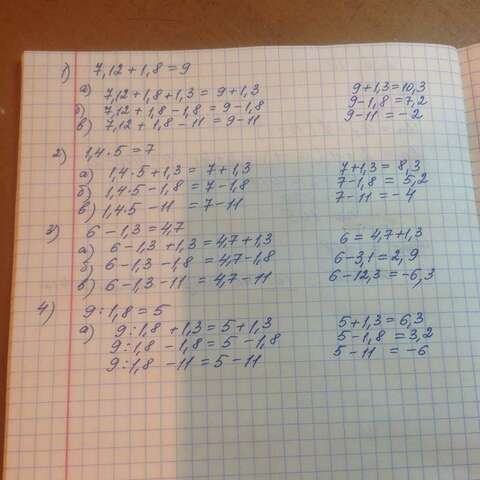 1) 7,12 + 1,8 = 9
а) 7,12 + 1,8 + 1,3 = 9 + 1,3 9 + 1,3 = 10,3
б) 7,12 + 1,8 - 1,8 = 9 - 1,8 9 - 1,8 = 7,2
в) 7,12 + 1,8 - 11 = 9 - 11 9 - 11 = -2
2) 1,4 · 5 = 7
а) 1,4 · 5 + 1,3 = 7 + 1,3 7 + 1,3 = 8,3
б) 1,4 · 5 - 1,8 = 7 - 1,8 7 - 1,8 = 5,2
в) 1,4 · 5 - 11 = 7 - 11 7 - 11 = -4
3) 6 - 1,3 = 4,7
а) 6 - 1,3 + 1,3 = 4,7 + 1,3 6 = 4,7 + 1,3
б) 6 - 1,3 - 1,8 = 4,7 - 1,8 6 - 3,1 = 2,9
в) 6 - 1,3 - 11 = 4,7 - 11 6 - 12,3 = -6,3
4) 9 : 1,8 = 5
а) 9 : 1,8 + 1,3 = 5 + 1,3 5 + 1,3 = 6,3
9 : 1,8 - 1,8 = 5 - 1,8 5 - 1,8 = 3,2
9 : 1,8 - 11 = 5 - 11 5 - 11 = -6